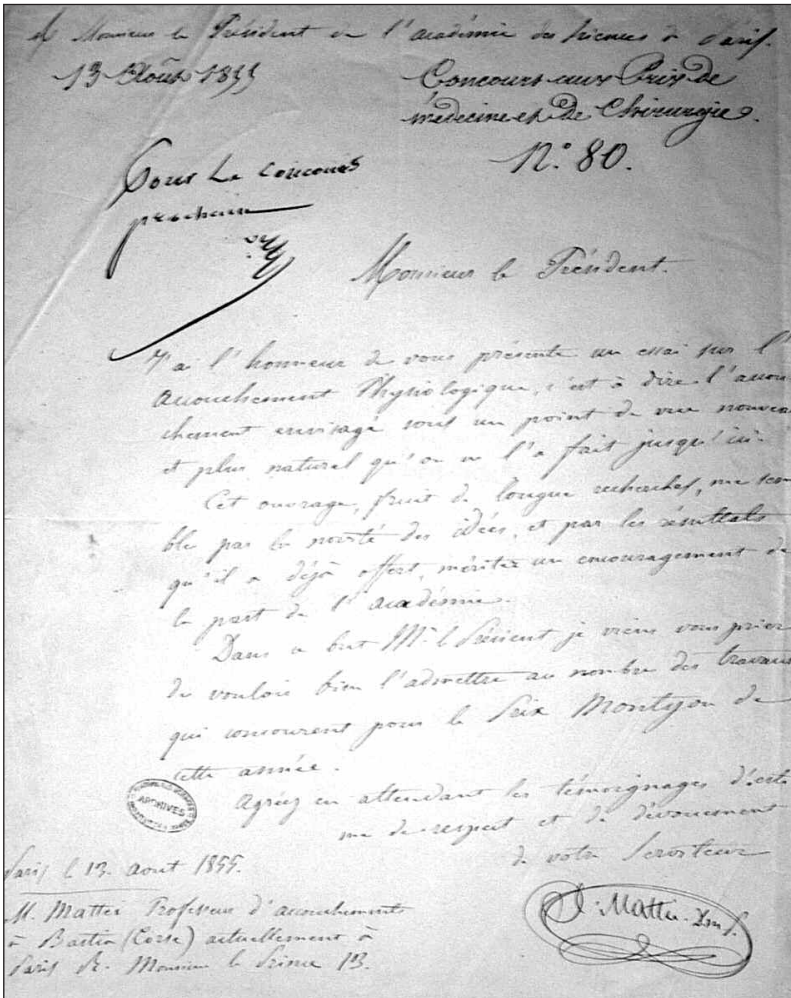 A Monsieur le Président de l'académie des sciences à Paris.
13 Août 1855
Concours aux Prix de
médecine et de Chirurgie.
N.° 80.
Pour le concours
prochain
Monsieur le Président.
J'ai l'honneur de vous présente un essai sur l'
Accouchement Physiologique, c'est à dire l'accou-
chement envisagé sous un point de vue nouveau
et plus naturel qu'on ne l'a fait jusqu'ici.
Cet ouvrage, fruit de longue recherches, me sem
ble par la novité des idées, et par les résultats
qu'il a déjà offert, mériter un encouragement de
la part de l'académie.
Dans ce but Mr. le Présient je viens vous prier
de vouloir bien l'admettre au nombre des travaux
qui concourent pour le Prix Montyon de
cette année.
Agréez en attendant les témoignages d'esti
me de respect et de dévouement
de votre Serviteur
ARCHIVES
Paris le 13. aout 1855.
A. Mattei
M. Mattei Professeur d'accouchements
à Bastia (Corse) actuellement à
Paris R. Monsieur le Prince 13.